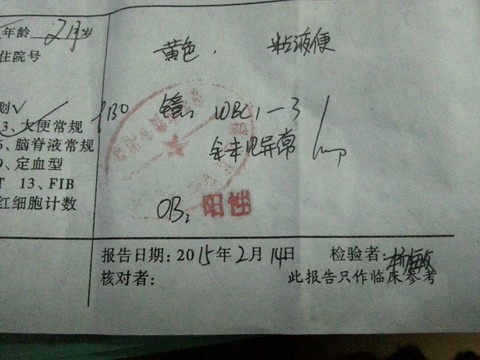 年龄 2月岁
住院号
黄色, 粘液便
划√
3、大便常规
镜: WBC 1-3 /hp
、脑脊液常规
余未见异常
、定血型
13、FIB
OB: 阳性
红细胞计数
报告日期: 2015年2月14日 检验者:
核对者: 此报告只作临床参考